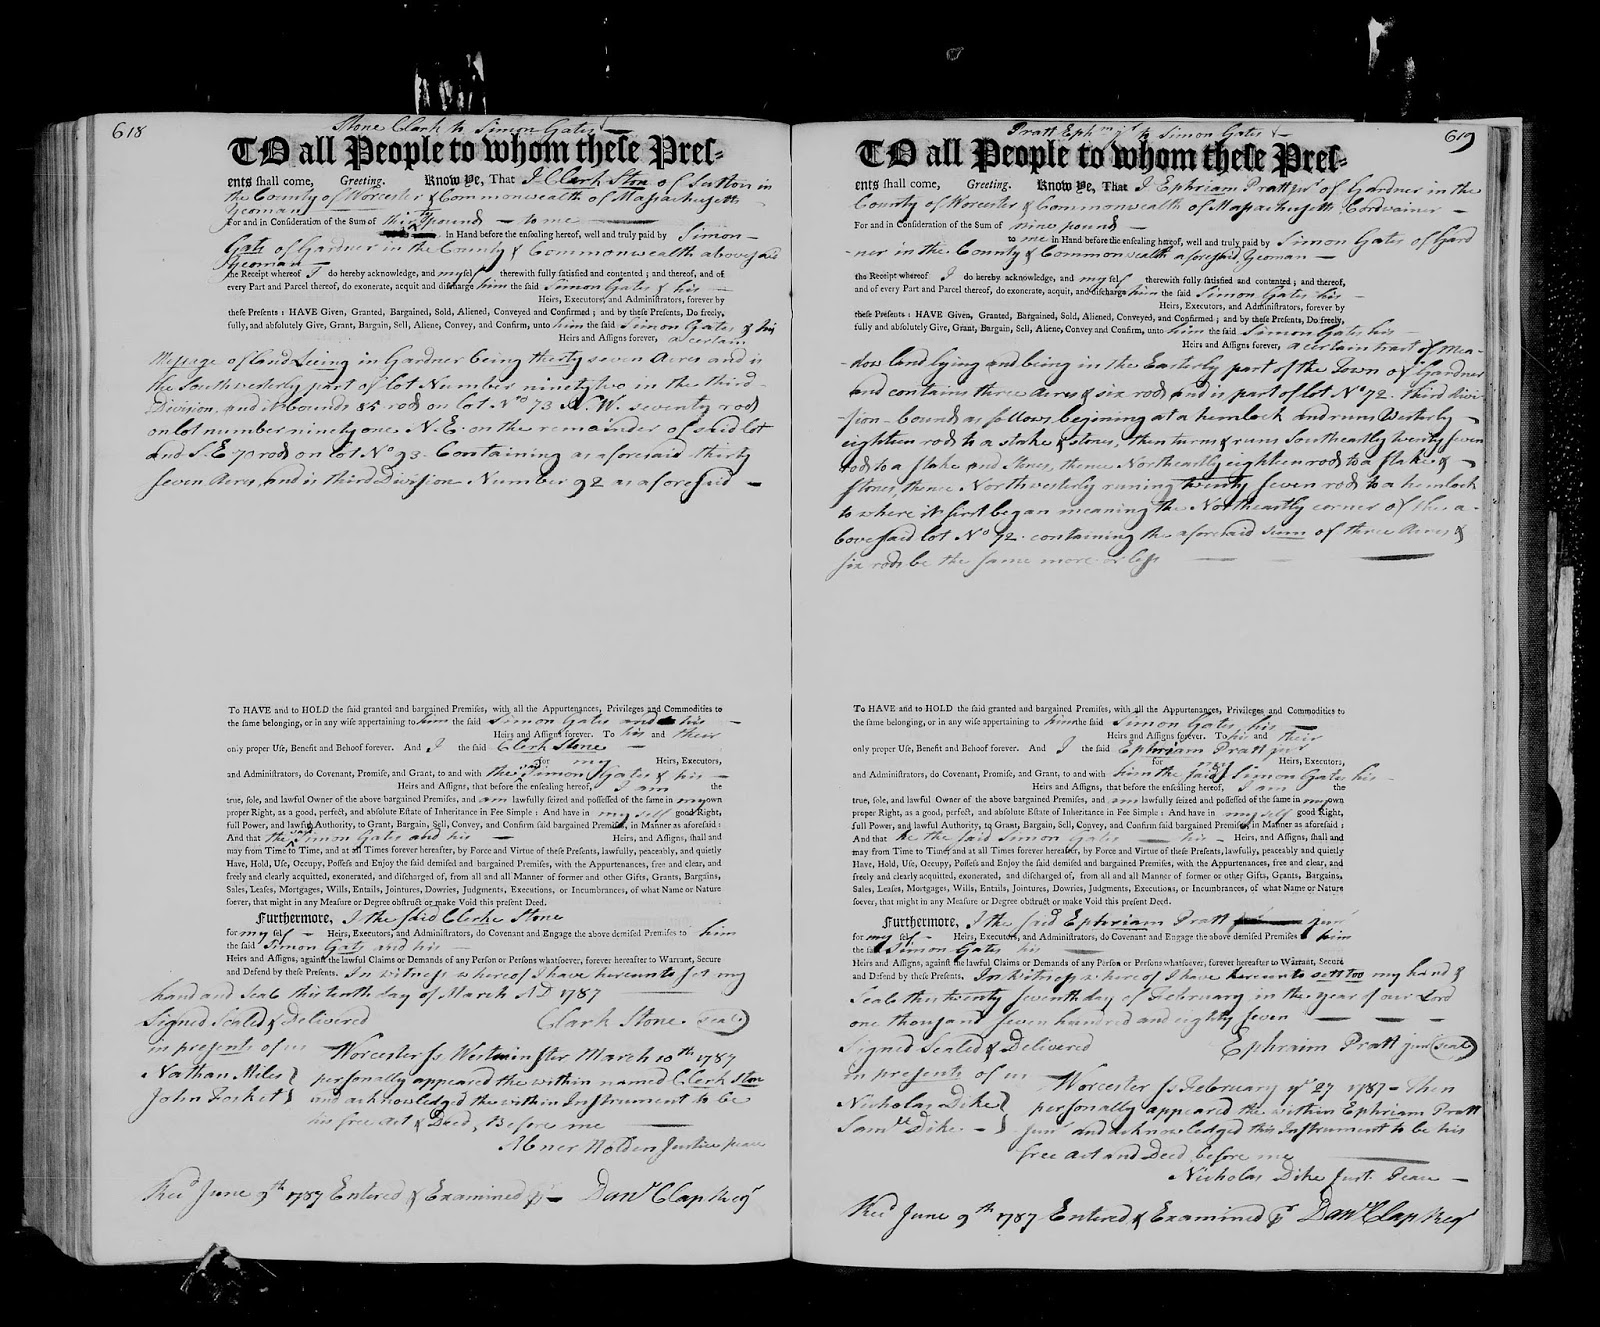 618
Stone Clark to Simon Gates
TO all People to whom theſe Preſ-
ents ſhall come, Greeting. Know Ye, That I Clark Stone of Sutton in
the County of Worcester & Commonwealth of Massachusetts
Yeoman
For and in Conſideration of the Sum of thirty pounds to me
in Hand before the enſealing hereof, well and truly paid by Simon
Gats of Gardner in the County & Commonwealth aboveſaid
Yeoman
the Receipt whereof I do hereby acknowledge, and myſelf therewith fully ſatisfied and contented; and thereof, and of
every Part and Parcel thereof, do exonerate, acquit and diſcharge him the ſaid Simon Gates & his
Heirs, Executors, and Adminiſtrators, forever by
theſe Preſents: HAVE Given, Granted, Bargained, Sold, Aliened, Conveyed and Confirmed; and by theſe Preſents, Do freely,
fully, and abſolutely Give, Grant, Bargain, Sell, Aliene, Convey, and Confirm, unto him the ſaid Simon Gates & his
Heirs and Aſſigns forever, a certain
of Land Lieing in Gardner being thirty seven Acres and is
the Southwesterly part of lot Number ninety two in the third
Division and it bounds 85 rods on lot No 73 N.W. seventy rods
on lot number ninety one N.E. on the remainder of said lot
and S.E 70 rods on lot No 93 Containing as aforesaid thirty
seven Acres, and is third Division Number 92 as aforesaid
To HAVE and to HOLD the ſaid granted and bargained Premiſes, with all the Appurtenances, Privileges and Commodities to
the ſame belonging, or in any wiſe appertaining to him the ſaid Simon Gates and his
Heirs and Aſſigns forever. To his and their
only proper Uſe, Benefit and Behoof forever. And I the ſaid Clerk Stone
for my Heirs, Executors,
and Adminiſtrators, do Covenant, Promiſe, and Grant, to and with the said Simon Gates & his
Heirs and Aſſigns, that before the enſealing hereof, I am the
true, ſole, and lawful Owner of the above bargained Premiſes, and am lawfully ſeized and poſſeſſed of the ſame in my own
proper Right, as a good, perfect, and abſolute Eſtate of Inheritance in Fee Simple: And have in my self good Right,
full Power, and lawful Authority, to Grant, Bargain, Sell, Convey, and Confirm ſaid bargained Premiſes, in Manner as aforeſaid:
And that the said Simon Gates and his Heirs and Aſſigns, ſhall and
may from Time to Time, and at all Times forever hereafter, by Force and Virtue of theſe Preſents, lawfully, peaceably, and quietly
Have, Hold, Uſe, Occupy, Poſſeſs and Enjoy the ſaid demiſed and bargained Premiſes, with the Appurtenances, free and clear, and
freely and clearly acquitted, exonerated, and diſcharged of, from all and all Manner of former and other Gifts, Grants, Bargains,
Sales, Leaſes, Mortgages, Wills, Entails, Jointures, Dowries, Judgments, Executions, or Incumbrances, of what Name or Nature
ſoever, that might in any Meaſure or Degree obſtruct or make Void this preſent Deed.
Furthermore, I the ſaid Clerke Stone
for my self Heirs, Executors, and Adminiſtrators, do Covenant and Engage the above demiſed Premiſes to him
the ſaid Simon Gats and his
Heirs and Aſſigns, againſt the lawful Claims or Demands of any Perſon or Perſons whatſoever, forever hereafter to Warrant, Secure
and Defend by theſe Preſents. In witness whereof I have hereunto set my
hand and seal this tenth day of March AD 1787
Signed Sealed & Delivered Clark Stone (seal)
in presents of us Worcester ſs Westminster March 10th 1787
Nathan Miles personally appeared the within named Clerk Stone
John Fosket and acknowledged the within Instrument to be
his free act & Deed, Before me
Abner Holden Justice peace
Recd June 9th 1787 Entered & Examined pr Danl Clap Regr
619
Pratt Ephm jr to Simon Gates
TO all People to whom theſe Preſ-
ents ſhall come, Greeting. Know Ye, That I Ephriam Pratt junr of Gardner in the
County of Worcester & Commonwealth of Massachusetts Cordwainer
For and in Conſideration of the Sum of nine pounds
to me in Hand before the enſealing hereof, well and truly paid by Simon Gates of Gard
ner in the County & Commonwealth aforesaid Yeoman
the Receipt whereof I do hereby acknowledge, and my self therewith fully ſatisfied and contented; and thereof,
and of every Part and Parcel thereof, do exonerate, acquit, and diſcharge him the ſaid Simon Gates his
Heirs, Executors, and Adminiſtrators, forever by
theſe Preſents: HAVE Given, Granted, Bargained, Sold, Aliened, Conveyed, and Confirmed; and by theſe Preſents, Do freely,
fully, and abſolutely Give, Grant, Bargain, Sell, Aliene, Convey and Confirm, unto him the ſaid Simon Gates his
Heirs and Aſſigns forever, a certain tract of Mea-
dow land lying and being in the Easterly part of the Town of Gardner
and contains three Acres & six rods and is part of lot No 72. third divi-
sion bounds as follows, begining at a hemlock and runs Westerly
eighteen rods to a stake & stones, then turns & runs Southeastly twenty seven
rods to a stake and stones, thence Northeastly eighteen rods to a stake &
stones, thence Northwesterly runing twenty seven rods to a hemlock
to where it first began meaning the Northeastly corner of the a-
bovesaid lot No 72. containing the aforesaid sum of three Acres &
six rods be the same more or less
To HAVE and to HOLD the ſaid granted and bargained Premiſes, with all the Appurtenances, Privileges and Commodities to
the ſame belonging, or in any wiſe appertaining to him the ſaid Simon Gates, his
Heirs and Aſſigns forever. To his and their
only proper Uſe, Benefit and Behoof forever. And I the ſaid Ephriam Pratt junr
for my Heirs, Executors,
and Adminiſtrators, do Covenant, Promiſe, and Grant, to and with him the said Simon Gates his
Heirs and Aſſigns, that before the enſealing hereof, I am the
true, ſole, and lawful Owner of the above bargained Premiſes, and am lawfully ſeized and poſſeſſed of the ſame in my own
proper Right, as a good, perfect, and abſolute Eſtate of Inheritance in Fee Simple: And have in my self good Right,
full Power, and lawful Authority, to Grant, Bargain, Sell, Convey, and Confirm ſaid bargained Premiſes, in Manner as aforeſaid:
And that he the said Simon Gates his Heirs and Aſſigns, ſhall and
may from Time to Time, and at all Times forever hereafter, by Force and Virtue of theſe Preſents, lawfully, peaceably and quietly
Have, Hold, Uſe, Occupy, Poſſeſs and Enjoy the ſaid demiſed and bargained Premiſes, with the Appurtenances, free and clear, and
freely and clearly acquitted, exonerated, and diſcharged of, from all and all Manner of former or other Gifts, Grants, Bargains,
Sales, Leaſes, Mortgages, Wills, Entails, Jointures, Dowries, Judgments, Executions, or Incumbrances, of what Name or Nature
ſoever, that might in any Meaſure or Degree obſtruct or make Void this preſent Deed.
Furthermore, I the ſaid Ephriam Pratt junr
for my self Heirs, Executors, and Adminiſtrators, do Covenant and Engage the above demiſed Premiſes to him
the ſaid Simon Gates his
Heirs and Aſſigns, againſt the lawful Claims or Demands of any Perſon or Perſons whatſoever, forever hereafter to Warrant, Secure
and Defend by theſe Preſents. In Witness whereof I have hereunto sett too my hand &
Seale this twenty seventh day of February in the year of our Lord
one thousand seven hundred and eighty seven
Signed Sealed & Delivered Ephraim Pratt junr (seal)
in presents of us Worcester ſs February ye 27 1787 Then
Nicholas Dike personally appeared the within Ephriam Pratt
Samll Dike junr and acknowledged this Instrument to be his
free act and Deed before me
Nicholas Dike Just. Peace
Recd June 9th 1787 Entered & Examined pr Danl Clap Regr